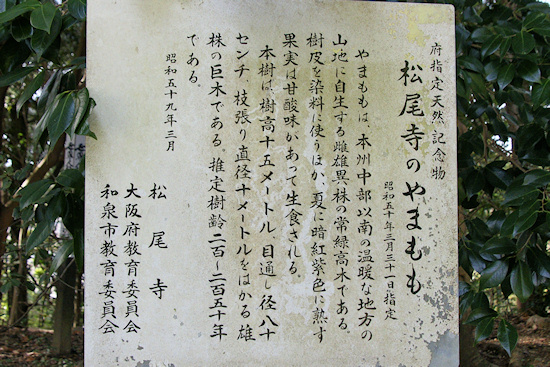 府指定天然記念物
松尾寺のやまもも
昭和五十年三月三一日指定
やまももは、本州中部以南の温暖な地方の
山地に自生する雌雄異株の常緑高木である。
樹皮を染料に使うほか、夏に暗紅紫色に熟す
果実は甘酸味があって生食される。
本樹は、樹高十五メートル、目通し径八十
センチ、枝張り直径十メートルをはかる雄
株の巨木である。推定樹齢二百~二百五十年
である。
昭和五十九年三月
松尾寺
大阪府教育委員会
和泉市教育委員会